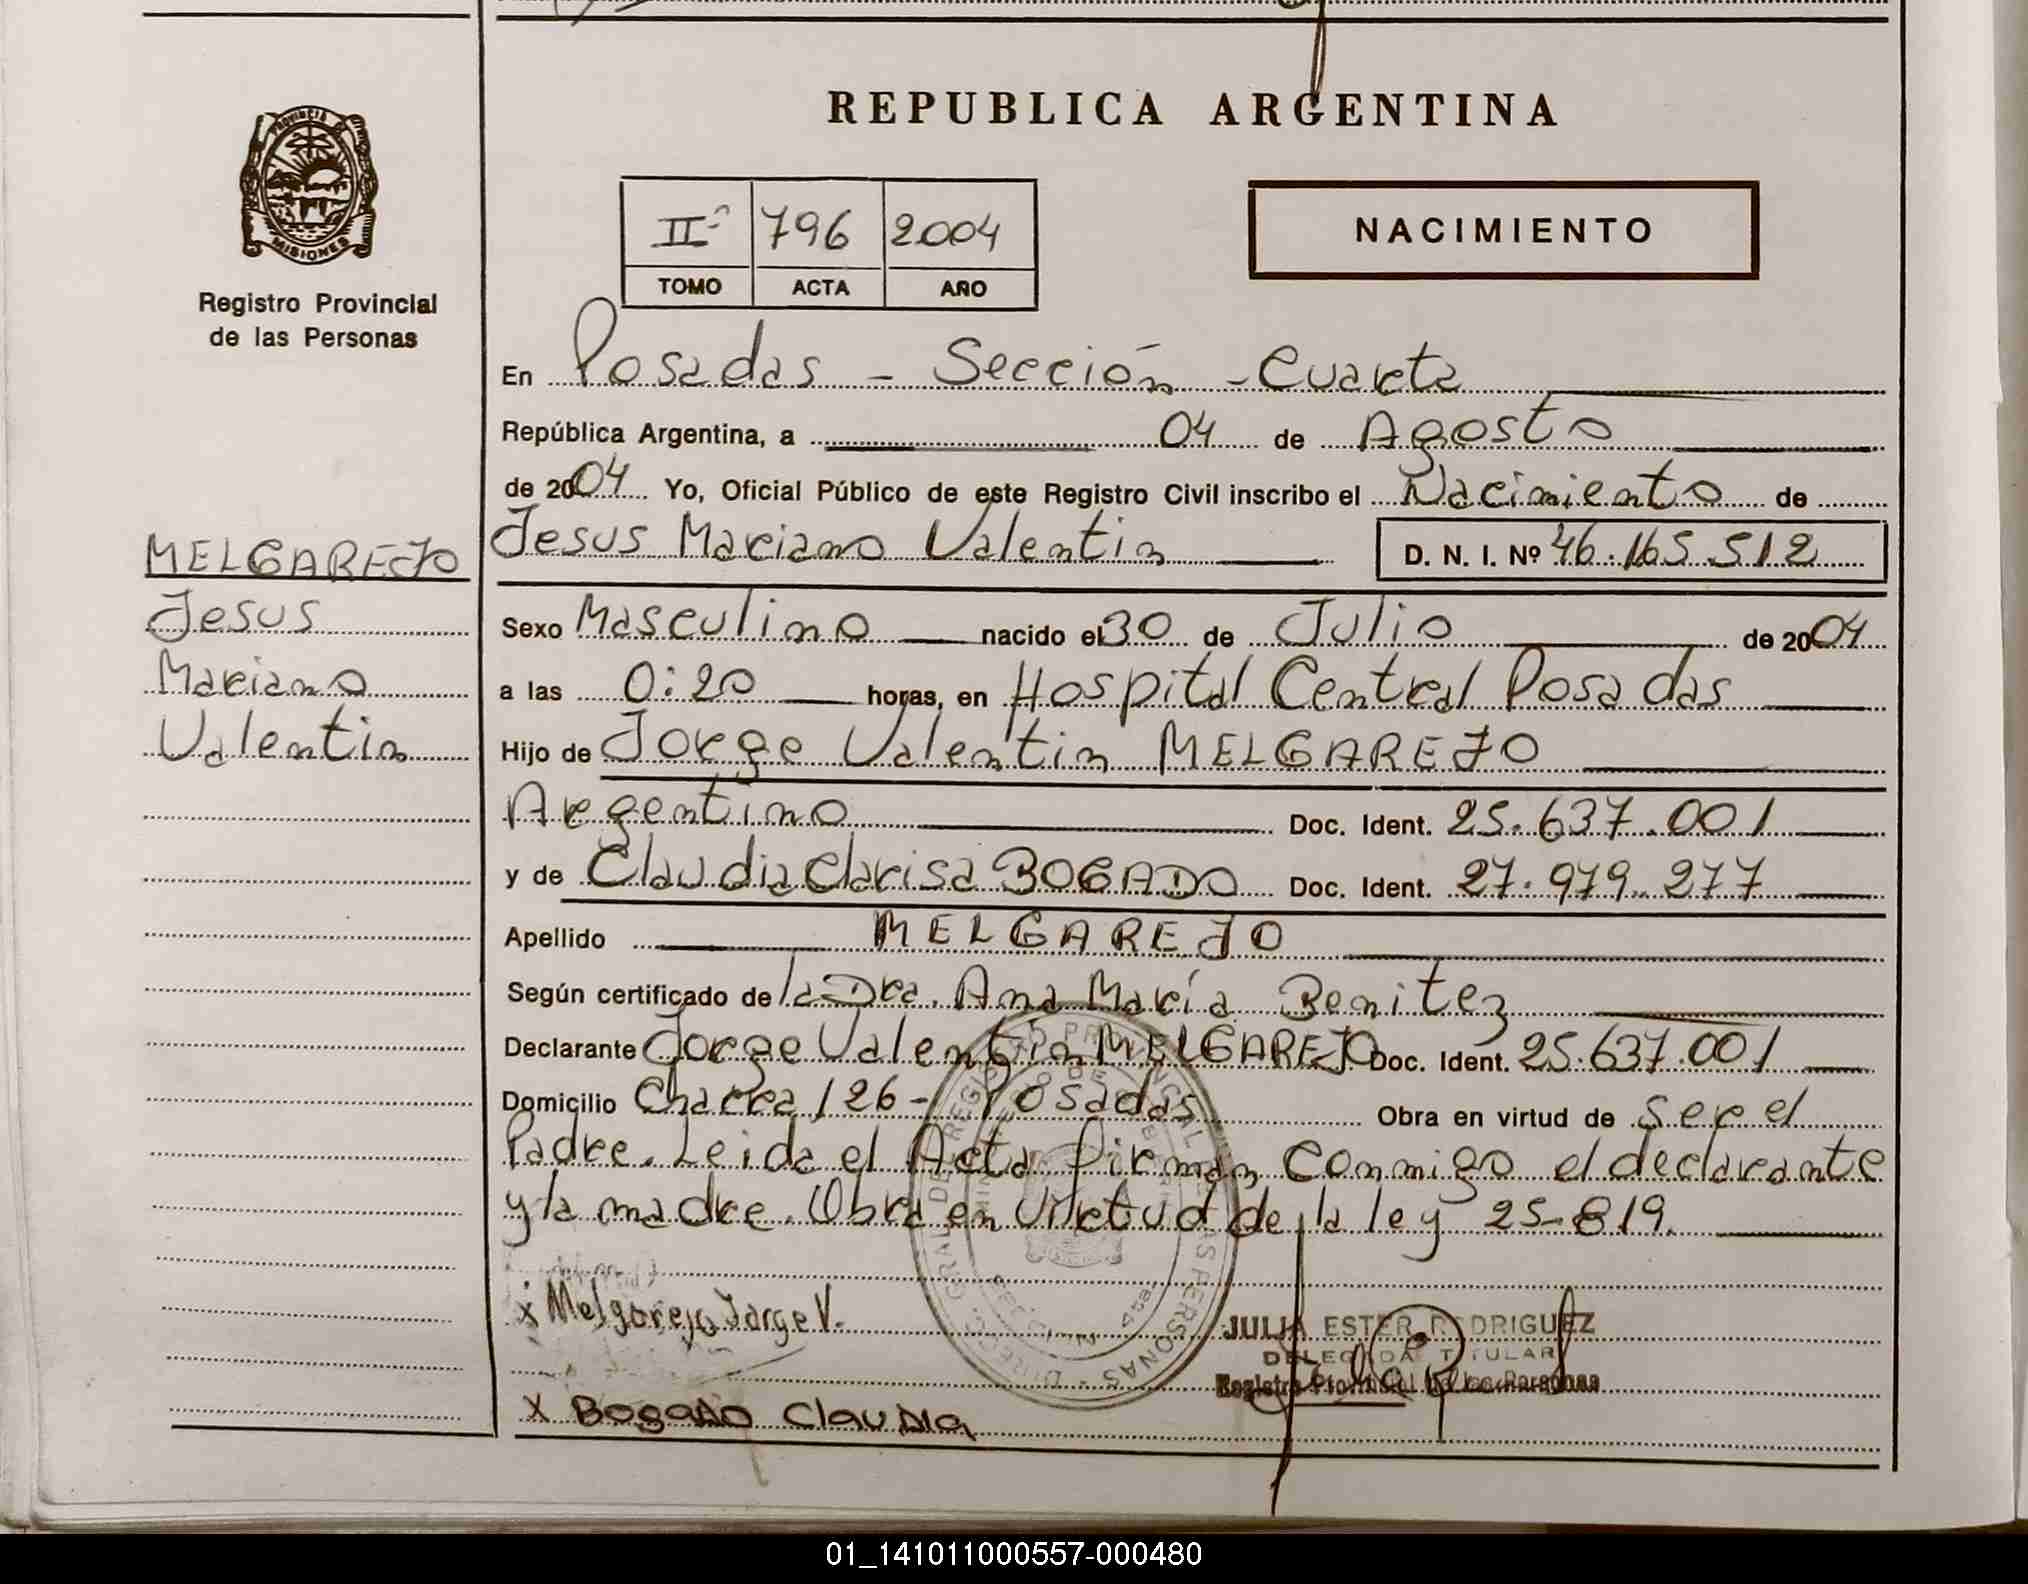 REPUBLICA ARGENTINA
PROVINCIA DE
MISIONES
Registro Provincial
de las Personas
IIº 796 2004
TOMO ACTA AÑO
NACIMIENTO
En Posadas - Sección - Cuarta
República Argentina, a 04 de Agosto
de 2004 Yo, Oficial Público de este Registro Civil inscribo el Nacimiento de
Jesus Mariano Valentin D. N. I. Nº 46.165.512
MELGAREJO
Jesus
Mariano
Valentin
Sexo Masculino nacido el 30 de Julio de 2004
a las 0:20 horas, en Hospital Central Posadas
Hijo de Jorge Valentin MELGAREJO
Argentino Doc. Ident. 25.637.001
y de Claudia Clarisa BOGADO Doc. Ident. 27.979.277
Apellido MELGAREJO
Según certificado de la Dra. Ana María Benitez
Declarante Jorge Valentin MELGAREJO Doc. Ident. 25.637.001
Domicilio Chacra 126 - Posadas Obra en virtud de ser el
Padre. Leida el Acta firman conmigo el declarante
y la madre. Obra en virtud de la ley 25-819.
x Melgarejo Jorge V.
JULIA ESTER RODRIGUEZ
DELEGADA TITULAR
Registro Provincial de las Personas
x Bogado Claudia
01_141011000557-000480